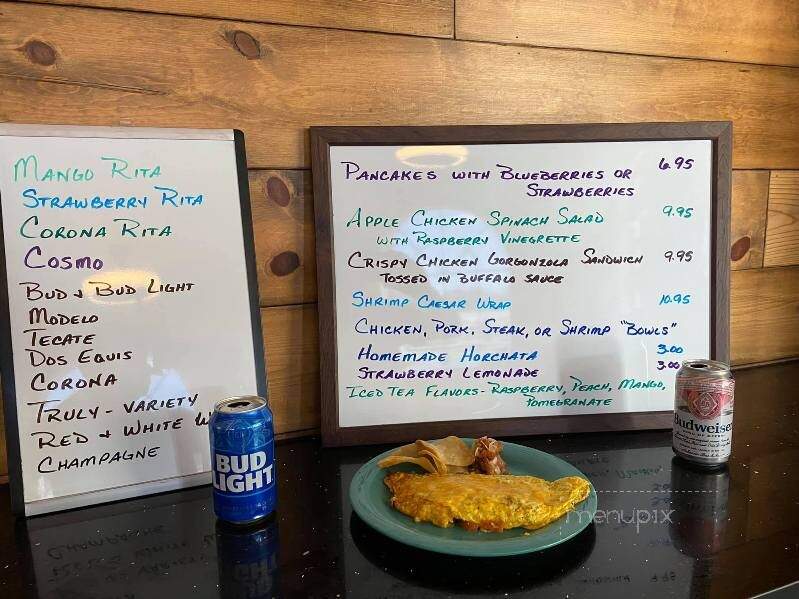 Mango Rita
Strawberry Rita
Corona Rita
Cosmo
Bud & Bud Light
Modelo
Tecate
Dos Equis
Corona
Truly - Variety
Red & White
Champagne
Pancakes with Blueberries or 6.95
Strawberries
Apple Chicken Spinach Salad 9.95
with Raspberry Vinegrette
Crispy Chicken Gorgonzola Sandwich 9.95
Tossed in Buffalo Sauce
Shrimp Caesar Wrap 10.95
Chicken, Pork, Steak, or Shrimp "Bowls"
Homemade Horchata 3.00
Strawberry Lemonade 3.00
Iced Tea Flavors - Raspberry, Peach, Mango,
Pomegranate
BUD
LIGHT
Budweiser
menupix